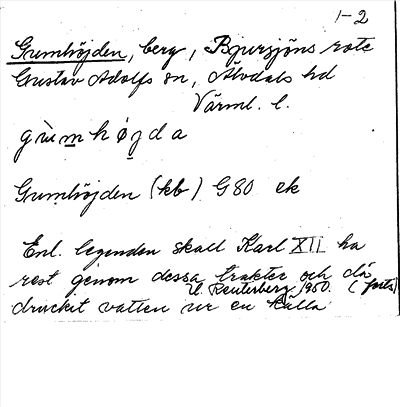 1-2
Grumhöjden, berg, Bjursjöns rote
Gustav Adolfs sn, Älvdals hd
Värml. l.
grùmhøjda
Grumhöjden (kb) G80 ek
Enl. legenden skall Karl XII ha
rest genom dessa trakter och då
U. Reuterberg 1950. (forts)
druckit vatten ur en källa